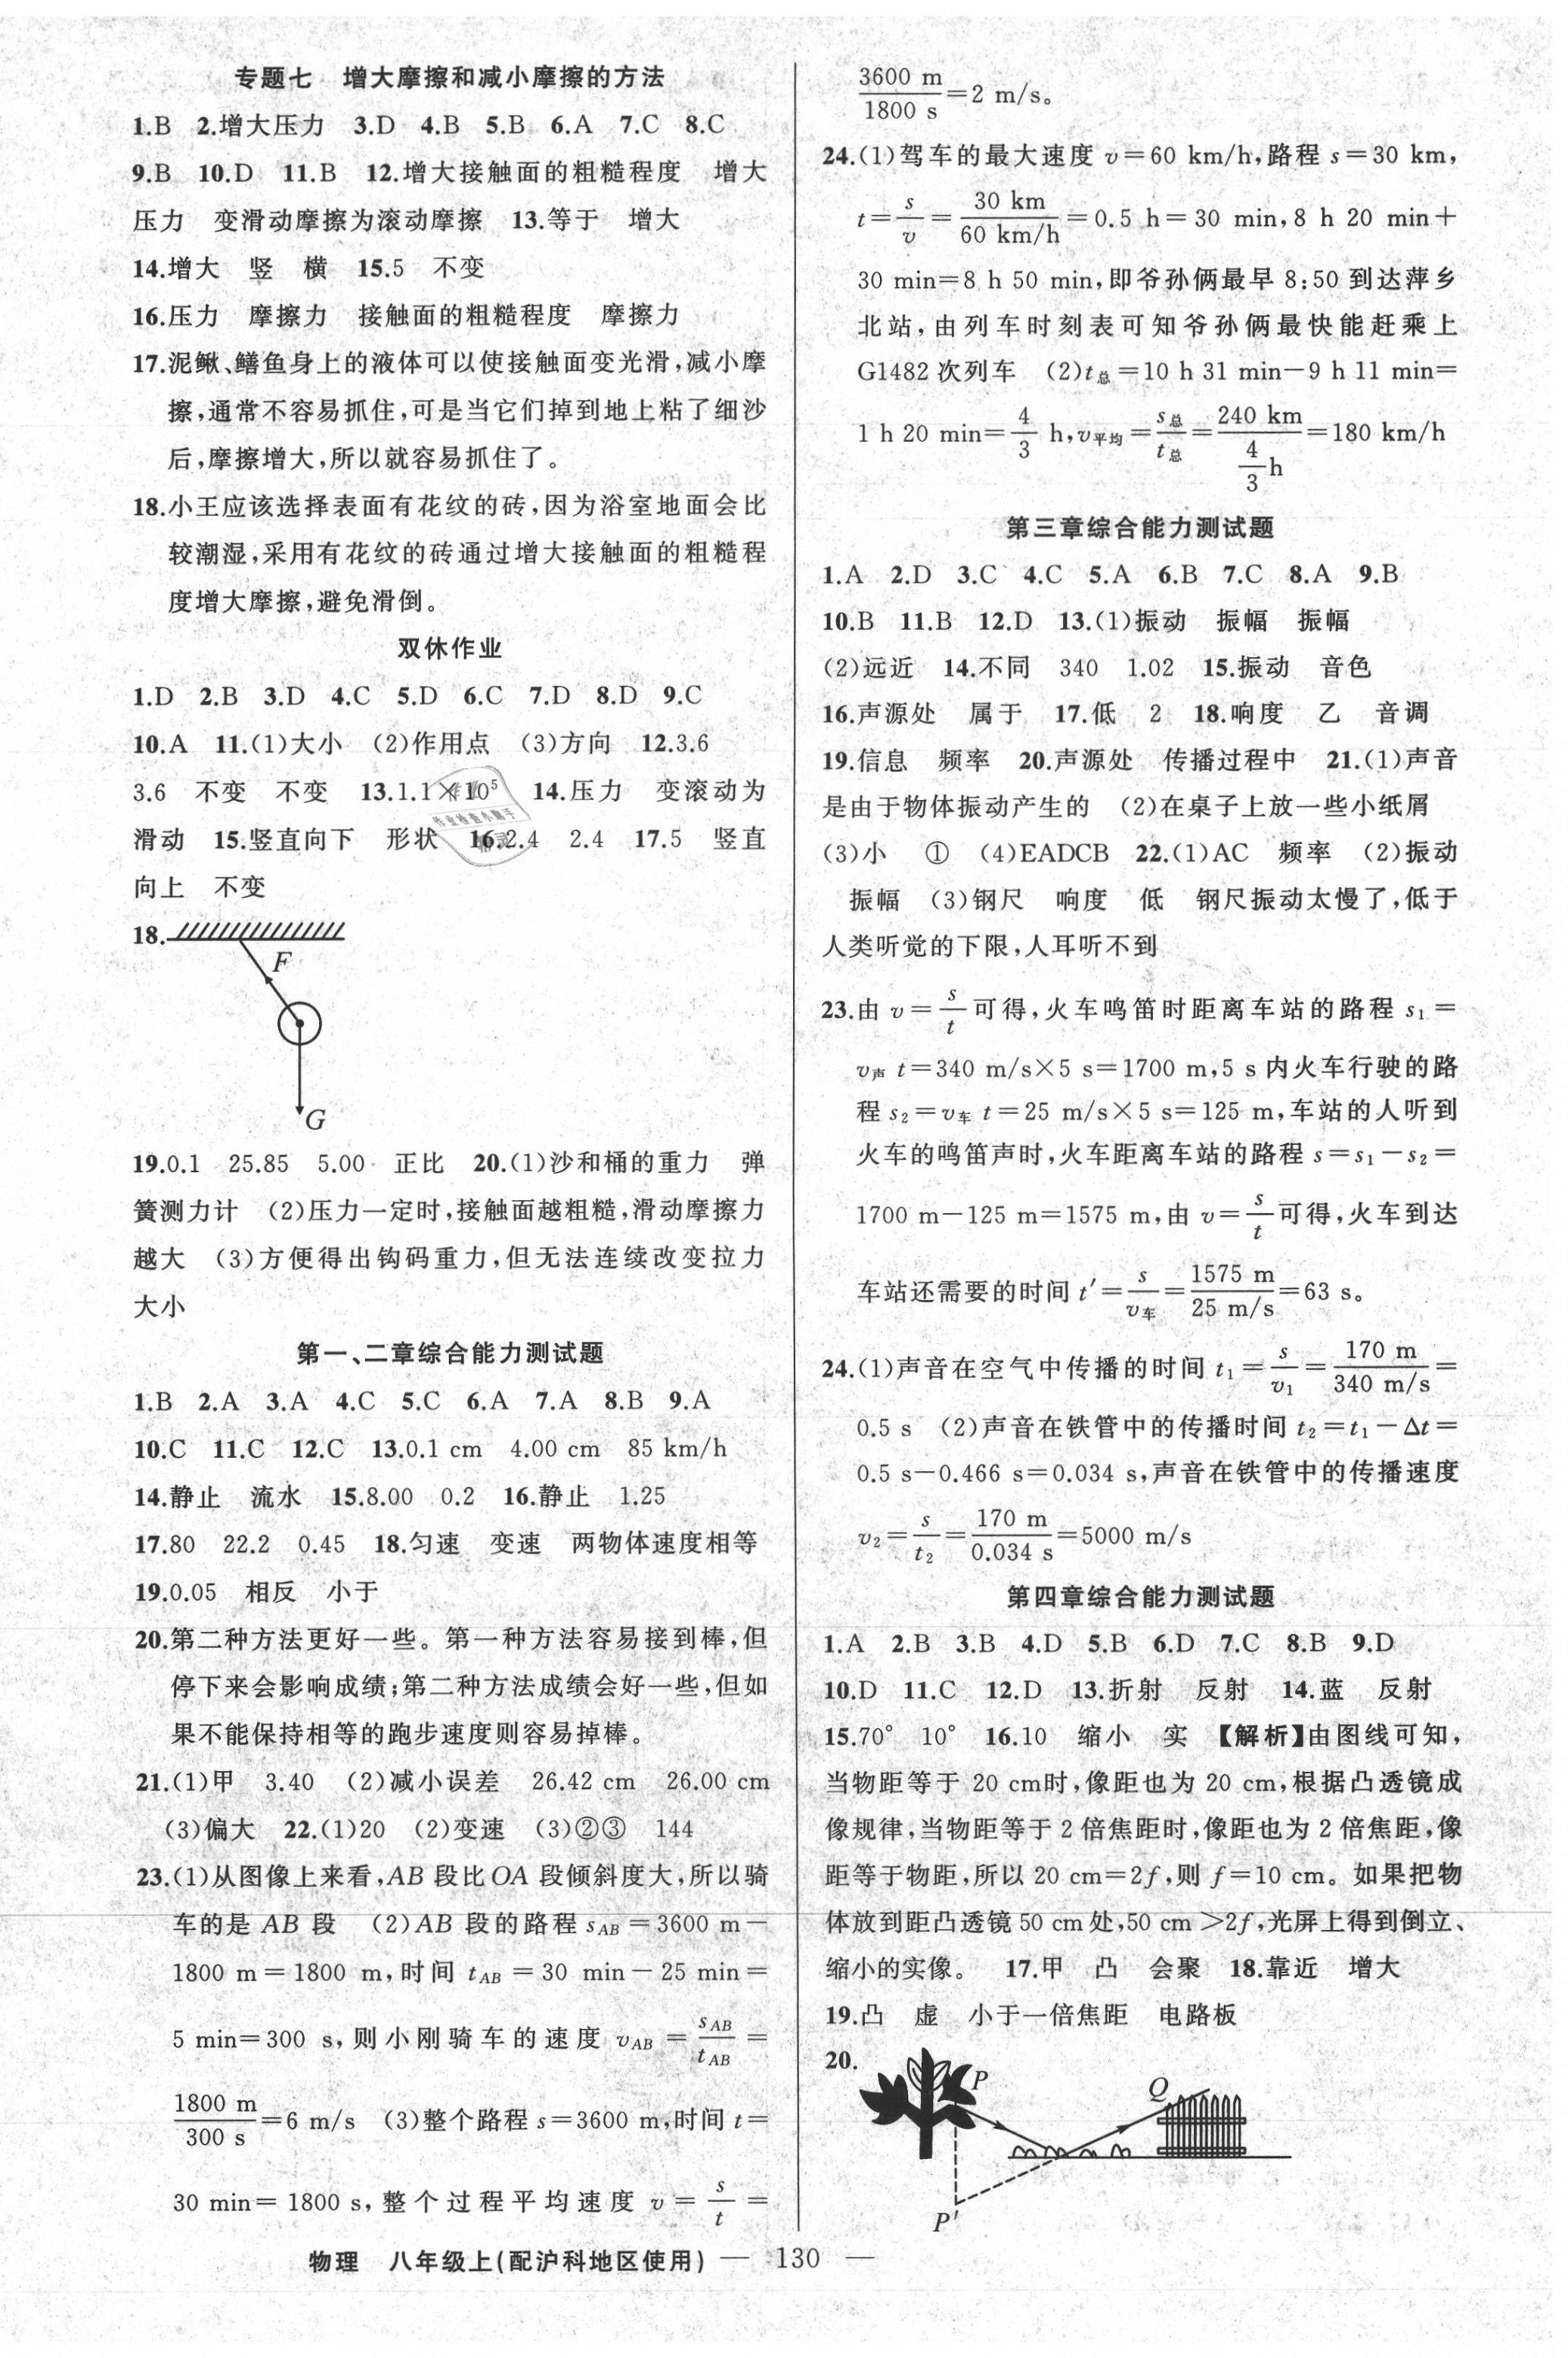 专题七 增大摩擦和减小摩擦的方法
1.B 2.增大压力 3.D 4.B 5.B 6.A 7.C 8.C
9.B 10.D 11.B 12.增大接触面的粗糙程度 增大
压力 变滑动摩擦为滚动摩擦 13.等于 增大
14.增大 竖 横 15.5 不变
16.压力 摩擦力 接触面的粗糙程度 摩擦力
17.泥鳅、鳝鱼身上的液体可以使接触面变光滑,减小摩
擦,通常不容易抓住,可是当它们掉到地上粘了细沙
后,摩擦增大,所以就容易抓住了。
18.小王应该选择表面有花纹的砖,因为浴室地面会比
较潮湿,采用有花纹的砖通过增大接触面的粗糙程
度增大摩擦,避免滑倒。
双休作业
1.D 2.B 3.D 4.C 5.D 6.C 7.D 8.D 9.C
10.A 11.(1)大小 (2)作用点 (3)方向 12.3.6
3.6 不变 不变 13.1.1×10⁵ 14.压力 变滚动为
滑动 15.竖直向下 形状 16.2.4 2.4 17.5 竖直
向上 不变
18.
F
G
19.0.1 25.85 5.00 正比 20.(1)沙和桶的重力 弹
簧测力计 (2)压力一定时,接触面越粗糙,滑动摩擦力
越大 (3)方便得出钩码重力,但无法连续改变拉力
大小
第一、二章综合能力测试题
1.B 2.A 3.A 4.C 5.C 6.A 7.A 8.B 9.A
10.C 11.C 12.C 13.0.1 cm 4.00 cm 85 km/h
14.静止 流水 15.8.00 0.2 16.静止 1.25
17.80 22.2 0.45 18.匀速 变速 两物体速度相等
19.0.05 相反 小于
20.第二种方法更好一些。第一种方法容易接到棒,但
停下来会影响成绩;第二种方法成绩会好一些,但如
果不能保持相等的跑步速度则容易掉棒。
21.(1)甲 3.40 (2)减小误差 26.42 cm 26.00 cm
(3)偏大 22.(1)20 (2)变速 (3)②③ 144
23.(1)从图像上来看,AB 段比 OA 段倾斜度大,所以骑
车的是 AB 段 (2)AB 段的路程 s_AB=3600 m−
1800 m=1800 m,时间 t_AB=30 min−25 min=
5 min=300 s,则小刚骑车的速度 v_AB=s_AB/t_AB=
1800 m/300 s=6 m/s (3)整个路程 s=3600 m,时间 t=
30 min=1800 s,整个过程平均速度 v=s/t=
3600 m/1800 s=2 m/s。
24.(1)驾车的最大速度 v=60 km/h,路程 s=30 km,
t=s/v=30 km/60 km/h=0.5 h=30 min,8 h 20 min+
30 min=8 h 50 min,即爷孙俩最早 8:50 到达萍乡
北站,由列车时刻表可知爷孙俩最快能赶乘上
G1482 次列车 (2)t总=10 h 31 min−9 h 11 min=
1 h 20 min=4/3 h,v平均=s总/t总=240 km/(4/3 h)=180 km/h
第三章综合能力测试题
1.A 2.D 3.C 4.C 5.A 6.B 7.C 8.A 9.B
10.B 11.B 12.D 13.(1)振动 振幅 振幅
(2)远近 14.不同 340 1.02 15.振动 音色
16.声源处 属于 17.低 2 18.响度 乙 音调
19.信息 频率 20.声源处 传播过程中 21.(1)声音
是由于物体振动产生的 (2)在桌子上放一些小纸屑
(3)小 ① (4)EADCB 22.(1)AC 频率 (2)振动
振幅 (3)钢尺 响度 低 钢尺振动太慢了,低于
人类听觉的下限,人耳听不到
23.由 v=s/t 可得,火车鸣笛时距离车站的路程 s₁=
v声 t=340 m/s×5 s=1700 m,5 s 内火车行驶的路
程 s₂=v车 t=25 m/s×5 s=125 m,车站的人听到
火车的鸣笛声时,火车距离车站的路程 s=s₁−s₂=
1700 m−125 m=1575 m,由 v=s/t 可得,火车到达
车站还需要的时间 t′=s/v车=1575 m/25 m/s=63 s。
24.(1)声音在空气中传播的时间 t₁=s/v₁=170 m/340 m/s=
0.5 s (2)声音在铁管中的传播时间 t₂=t₁−Δt=
0.5 s−0.466 s=0.034 s,声音在铁管中的传播速度
v₂=s/t₂=170 m/0.034 s=5000 m/s
第四章综合能力测试题
1.A 2.B 3.B 4.D 5.B 6.D 7.C 8.B 9.D
10.D 11.C 12.D 13.折射 反射 14.蓝 反射
15.70° 10° 16.10 缩小 实 【解析】由图线可知,
当物距等于 20 cm时,像距也为 20 cm,根据凸透镜成
像规律,当物距等于 2 倍焦距时,像距也为 2 倍焦距,像
距等于物距,所以 20 cm=2f,则 f=10 cm。如果把物
体放到距凸透镜 50 cm 处,50 cm>2f,光屏上得到倒立、
缩小的实像。 17.甲 凸 会聚 18.靠近 增大
19.凸 虚 小于一倍焦距 电路板
20.
P
Q
P′
物理 八年级上(配沪科地区使用) — 130 —